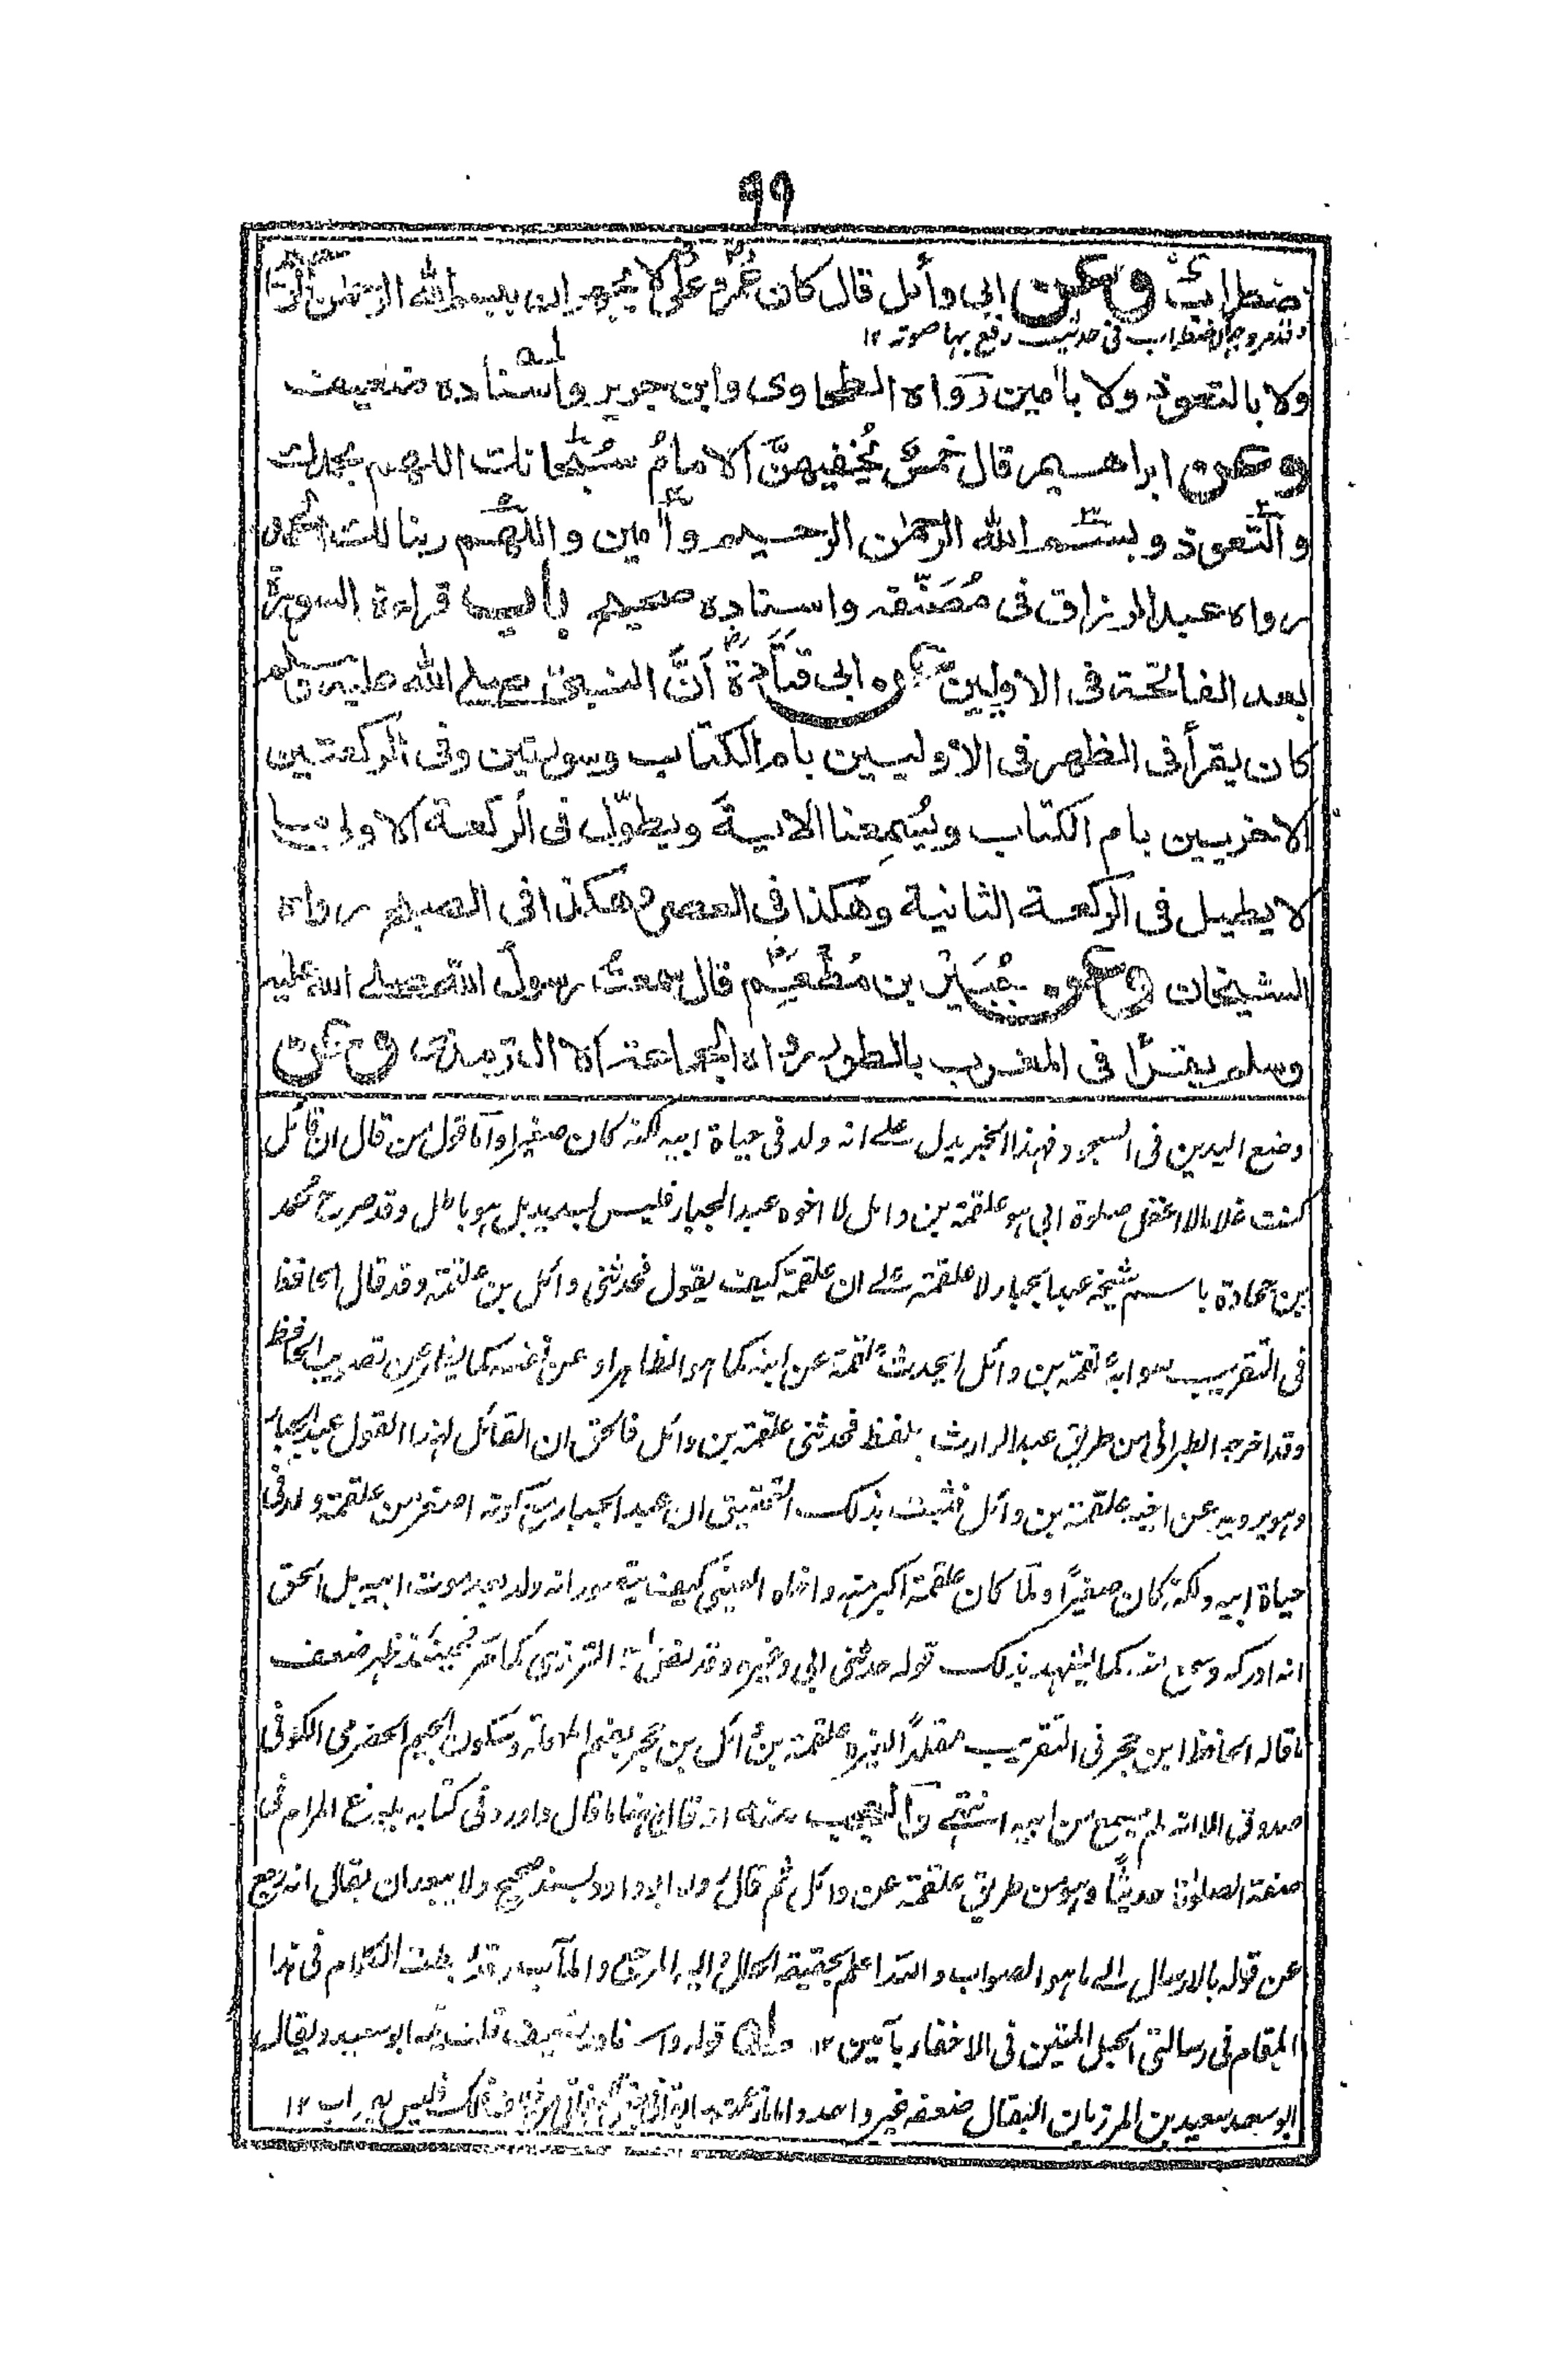 ٩٩
ضطراب وعن ابى وائل قال كان عمر وعلى لا يجهران ببسم الله الرحمٰن الرحيم
وقد مر وجه الاضطراب فى حديث رفع بها صوته ١٢
ولا بالتعوذ ولا باٰمين رواه الطحاوى وابن جرير واسناده ضعيف
وعن ابراهيم قال خمس يخفيهن الامام سبحانك اللهم وبحمدك
والتعوذ وبسم الله الرحمٰن الرحيم واٰمين واللهم ربنا لك الحمد
رواه عبد الرزاق فى مصنفه واسناده صحيح باب قراءة السورة
بعد الفاتحة فى الاوليين عن ابى قتادة اَنَّ النبى صلى الله عليه وسلم
كان يقرأ فى الظهر فى الاوليين بام الكتاب وسورتين وفى الركعتين
الاخريين بام الكتاب ويُسمِعنا الاية ويطوّل فى الركعة الاولى ما
لا يطيل فى الركعة الثانية وهكذا فى العصر وهكذا فى الصبح رواه
الشيخان وعن جُبَيْر بن مُطْعِم قال سمعت رسول الله صلى الله عليه
وسلم يقرأ فى المغرب بالطور رواه الجماعة الا الترمذى وعن
وضع اليدين فى السجود فهذا الخبر يدل على انه ولد فى حياة ابيه لكنه كان صغيرا واما قول من قال ان قائل
كنت غلاما لا اعقل صلوة ابى هو علقمة بن وائل لا اخوه عبد الجبار فليس بسديد بل هو باطل وقد صرح محمد
بن جحادة باسم شيخه عبد الجبار لا علقمة على ان علقمة كيف يقول فحدثنى وائل بن علقمة وقد قال الحافظ
فى التقريب صوابه علقمة بن وائل ايحدث علقمة عن ابنه كما هو الظاهر او عن نفسه كما يظهر عن تصويب الحافظ
وقد اخرجه الطبرانى من طريق عبد الوارث بلفظ فحدثنى علقمة بن وائل فالحق ان القائل لهذا القول عبد الجبار
وهو يرويه عن اخيه علقمة بن وائل فثبت بذلك التحقيق ان عبد الجبار مع كونه اصغر من علقمة ولد فى
حياة ابيه ولكنه كان صغيرًا ولما كان علقمة اكبر منه واخاه العينى كيف يتصور انه ولد بعد موت ابيه بل الحق
انه ادركه وسمع منه كما يشهد بذلك قوله حدثنى ابى وغيره وقد نص الترمذى كما مر فحينئذ ظهر ضعف
ما قاله الحافظ ابن حجر فى التقريب مقلدًا لغيره علقمة بن وائل بن حجر بضم المهملة وسكون الجيم الحضرمى الكوفى
صدوق الا انه لم يسمع من ابيه انتهى والعجب منه انه قال ههنا ما قال واورد فى كتابه بلوغ المرام فى
صفة الصلوٰة حديثًا وهو من طريق علقمة عن وائل ثم قال رواه ابو داود بسند صحيح ولا يبعد ان يقال انه رجع
عن قوله بالارسال الى ما هو الصواب والله اعلم بحقيقة الحال واليه المرجع والمآب وقد بسطت الكلام فى هذا
المقام فى رسالتى الحبل المتين فى الاخفاء بآمين ١٢ قوله واسناده ضعيف قلت فيه ابو سعيد ويقال
ابو سعد سعيد بن المرزبان البقال ضعفه غير واحد فليس بصواب ١٢